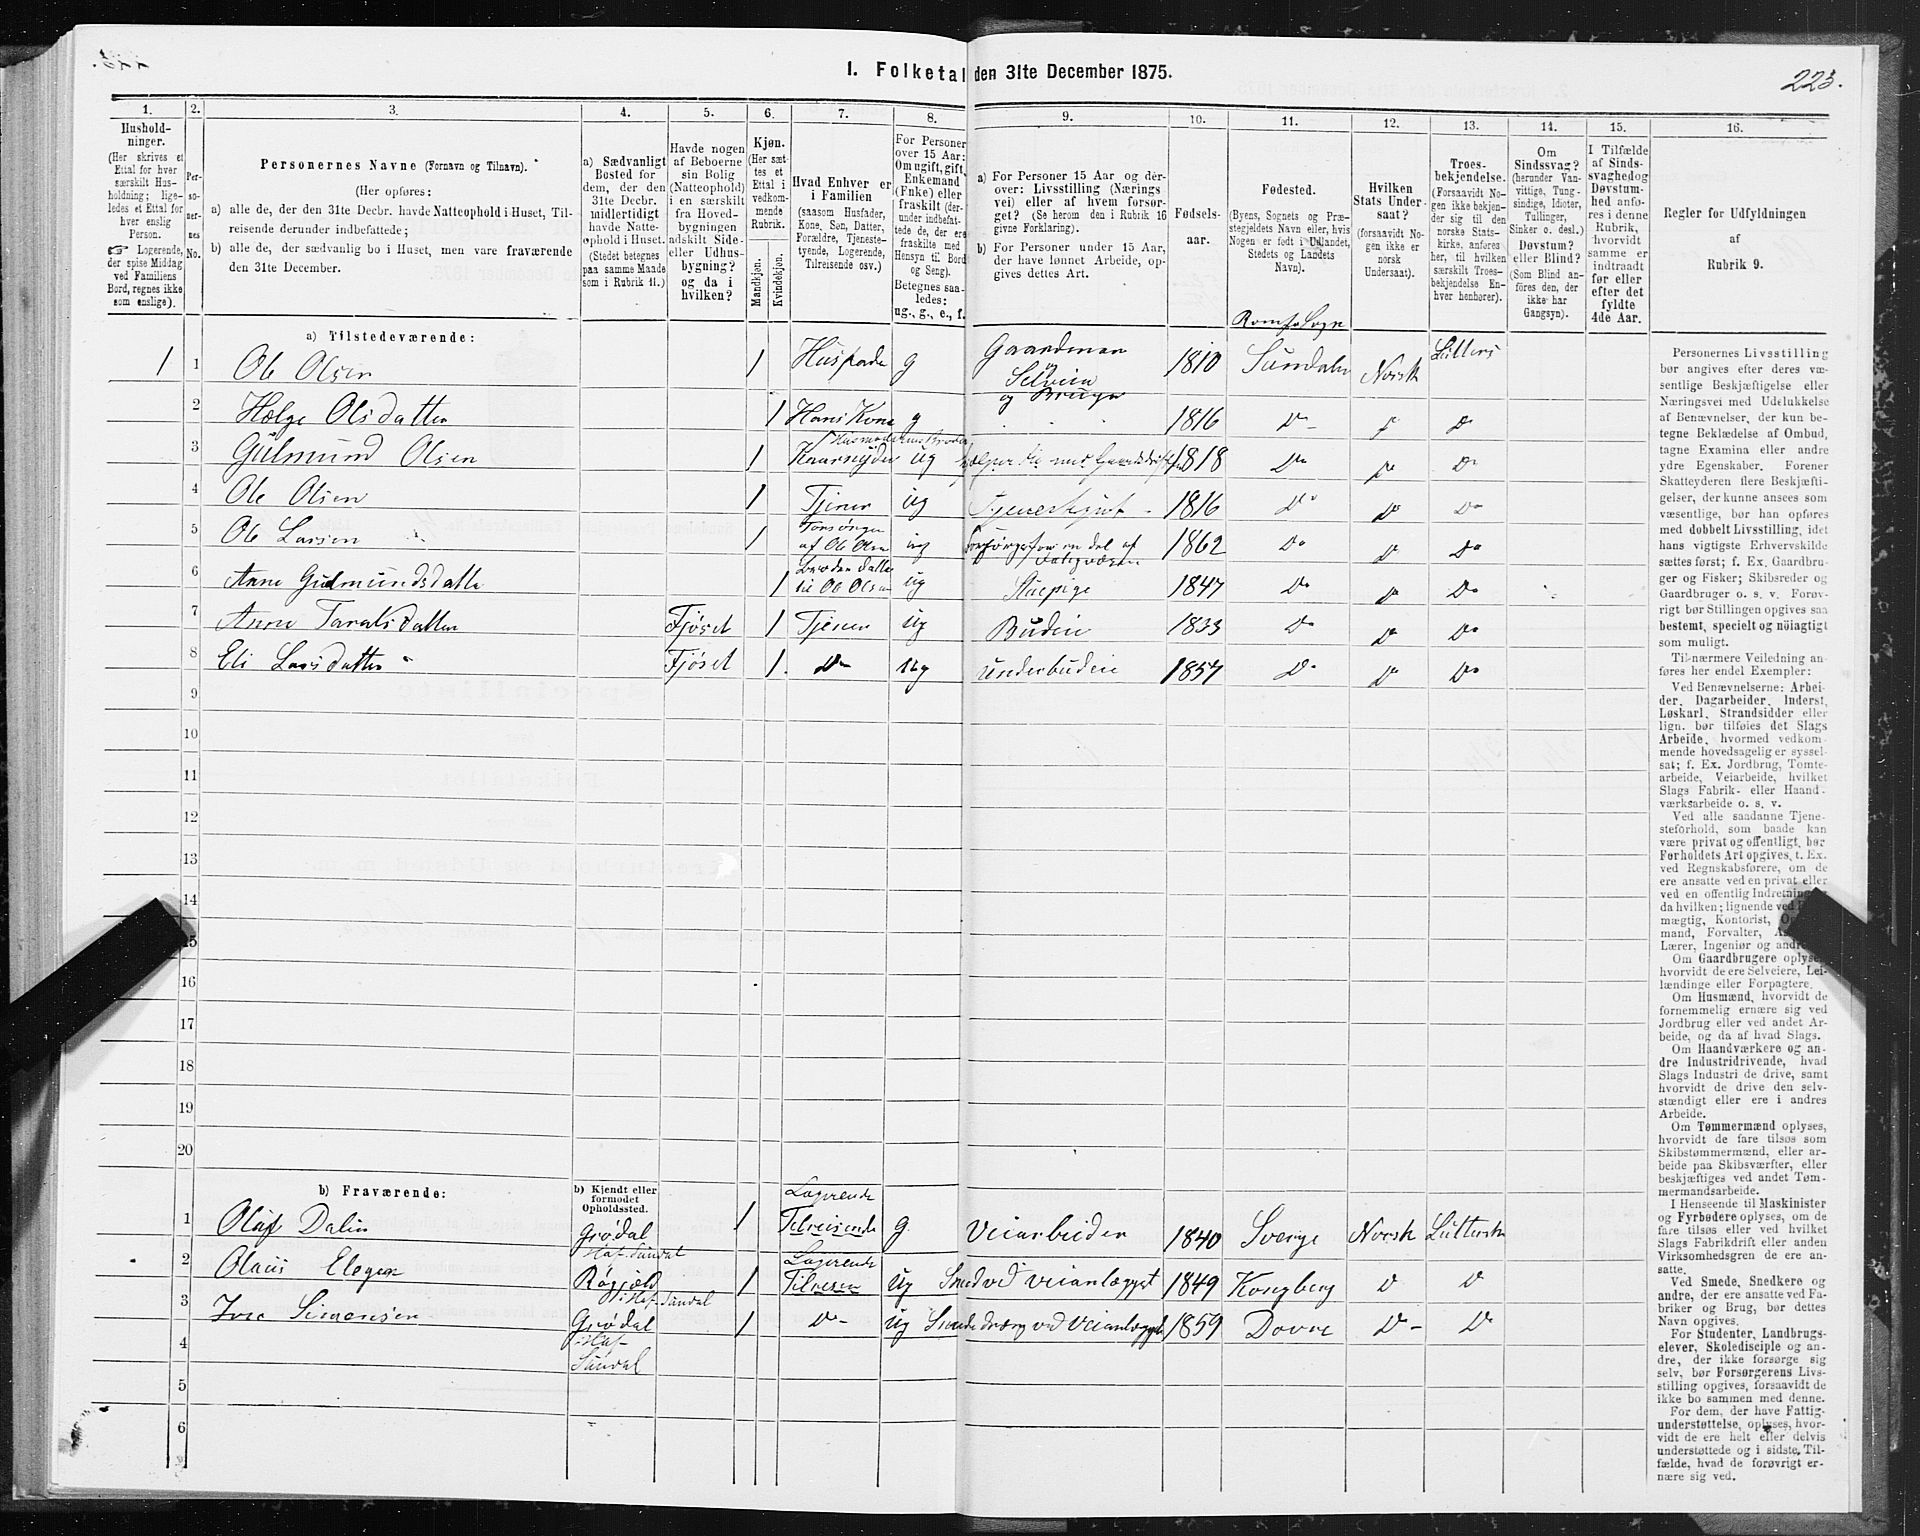 I. Folketal den 31te December 1875.
223.
1. 2. 3. 4. 5. 6. 7. 8. 9. 10. 11. 12. 13. 14. 15. 16.
Hushold-
ninger.
(Her skrives et
Ettal for hver
særskilt Hus-
holdning; lige-
ledes et Ettal for
hver enslig
Person.
☞ Logerende,
der spise Middag
ved Familiens
Bord, regnes ikke
som enslige).
Per-
so-
ner-
nes
No.
Personernes Navne (Fornavn og Tilnavn).
(Her opføres:
a) alle de, der den 31te Decbr. havde Natteophold i Huset, Til-
reisende derunder indbefattede;
b) alle de, der sædvanlig bo i Huset, men vare fraværende
den 31te December.
a) Sædvanligt
Bosted for
dem, der den
31te Decbr.
midlertidigt
havde Natte-
ophold i Huset.
(Stedet betegnes
paa samme Maade
som i Rubrik 11.)
Havde nogen
af Beboerne
sin Bolig
(Natteophold)
i en særskilt
fra Hoved-
bygningen
adskilt Side-
eller Udhus-
bygning?
og da i
hvilken?
Kjøn.
(Her sæt-
tes et
Ettal i
vedkom-
mende
Rubrik.
Mandkjøn.
Kvindekjøn.
Hvad Enhver er
i Familien
(saasom Husfader,
Kone, Søn, Datter,
Forældre, Tjeneste-
tyende, Logerende,
Tilreisende osv.)
For Personer
over 15 Aar:
Om ugift, gift,
Enkemand
(Enke) eller
fraskilt (der-
under indbefat-
tede de, der ere
fraskilte med
Hensyn til Bord
og Seng).
Betegnes saa-
ledes:
ug., g., e., f.
a) For Personer 15 Aar og der-
over: Livsstilling (Nærings
vei) eller af hvem forsør-
get? (Se herom den i Rubrik 16
givne Forklaring).
b) For Personer under 15 Aar,
der have lønnet Arbeide, op-
gives dettes Art.
Fødsels-
aar.
Fødested.
(Byens, Sognets og Præ-
stegjeldets Navn eller, hvis
Nogen er født i Udlandet,
Stedets og Landets
Navn).
Hvilken
Stats Under-
saat?
(forsaavidt No-
gen ikke er
norsk
Undersaat).
Troes-
bekjendelse.
(Forsaavidt No-
gen ikke bekjen-
der sig til den
norske Stats-
kirke, anføres
her, til hvilken
særskilt Troes-
bekjendelse En-
hver henhører).
Om
Sindssvag?
(herunder Van-
vittige, Tung-
sindige, Idioter,
Tullinger,
Sinker o. desl.)
Døvstum?
eller Blind?
(Som Blind an-
føres den, der
ikke har
Gangsyn).
I Tilfælde
af Sinds-
svaghed og
Døvstum-
hed anfø-
res i denne
Rubrik,
hvorvidt
samme er
indtraadt
før eller
efter det
fyldte
4de Aar.
Regler for Udfyldningen
af
Rubrik 9.
a) Tilstedeværende:
1 1 Ole Olsen 1 Husfader g Gaardman og Selveier og Bruger 1810 Sundalen Norsk Luthers
2 Helge Olsdatter 1 Hans Kone g 1816 Do
3 Gulmund Olsen 1 ug 1818 Do Do Do
4 Ole Olsen 1 Tjener ug 1816 Do Do Do
5 Ole Larsen 1 af Ole Olsen ug 1862 Do Do Do
6 Anne Gulmundsdatter 1 Broderdatter til Ole Olsen ug Stuepige 1847 Do Do Do
7 Anne Taralsdatter Fjøset 1 Tjener ug Budeie 1833 Do Do Do
8 Eli Larsdatter Fjøset 1 Do ug Underbudeie 1857 Do Do Do
9
10
11
12
13
14
15
16
17
18
19
20
b) Fraværende:
b) Kjendt eller
formodet
Opholdssted.
1 Oluf Dalin Grødal 1 Logerende Tilreisende g Veiarbeider 1840 Sverige Norsk Luttersk
2 Olaus 1 Logerende ug Smed ved Veianlægget 1849 Kongberg D D
3 Iver Simensen Grødal 1 D ug Smededræng ved Veianlægget 1859 Dovre D D
4
5
6
Personernes Livsstilling
bør angives efter deres væ-
sentlige Beskjæftigelse eller
Næringsvei med Udelukkelse
af Benævnelser, der kun be-
tegne Beklædelse af Ombud,
tagne Examina eller andre
ydre Egenskaber. Forener
Skatteyderen flere Beskjæfti-
gelser, der kunne ansees som
væsentlige, bør han opføres
med dobbelt Livsstilling, idet
hans vigtigste Erhvervskilde
sættes først; f. Ex. Gaardbru-
ger og Fisker; Skibsreder og
Gaardbruger o. s. v. Forøv-
rigt bør Stillingen opgives saa
bestemt, specielt og nöiagtigt
som muligt.
Til nærmere Veiledning an-
føres her endel Exempler:
Ved Benævnelserne: Arbei-
der, Dagarbeider, Inderst,
Løskarl, Strandsidder eller
lign. bør tilføies det Slags
Arbeide, hvormed vedkom-
mende hovedsagelig er syssel-
sat; f. Ex. Jordbrug, Tomte-
arbeide, Veiarbeide, hvilket
Slags Fabrik- eller Haand-
værksarbeide o. s. v.
Ved alle saadanne Tjene-
steforhold, som baade kan
være privat og offentligt, bør
Forholdets Art opgives, t. Ex.
ved Regnskabsførere, om de
ere ansatte ved en privat eller
ved en offentlig Indretning og
da hvilken; lignende ved
mægtig, Kontorist,
mand, Forvalter,
Lærer, Ingeniør og andre.
Om Gaardbrugere oplyses,
hvorvidt de ere Selveiere, Lei-
lændinge eller Forpagtere.
Om Husmænd, hvorvidt de
fornemmelig ernære sig ved
Jordbrug eller ved andet Ar-
beide, og da af hvad Slags.
Om Haandværkere og an-
dre Industridrivende, hvad
Slags Industri de drive, samt
hvorvidt de drive den selv-
stændigt eller ere i andres
Arbeide.
Om Tømmermænd oplyses,
hvorvidt de fare tilsøs som
Skibstømmermænd, eller ar-
beide paa Skibsværfter, eller
beskjæftiges ved andet Tøm-
mermandsarbeide.
I Henseende til Maskinister
og Fyrbødere oplyses, om de
fare tilsøs eller ved hvilket
Slags Fabrikdrift eller anden
Virksomhed de ere an-
satte.
Ved Smede, Snedkere og
andre, der ere ansatte ved Fa-
briker og Brug, bør dettes
Navn opgives.
For Studenter, Landbrugs-
elever, Skoledisciple og an-
dre, der ikke forsørge sig
selv, bør Forsørgerens Livs-
stilling opgives, forsaavidt de
ikke bo sammen med denne.
For dem, der have Fattig-
understøttelse, oplyses, hvor-
vidt de ere helt eller delvis
understøttede og i sidste Til-
fælde, hvad de forøvrigt er-
nære sig ved.